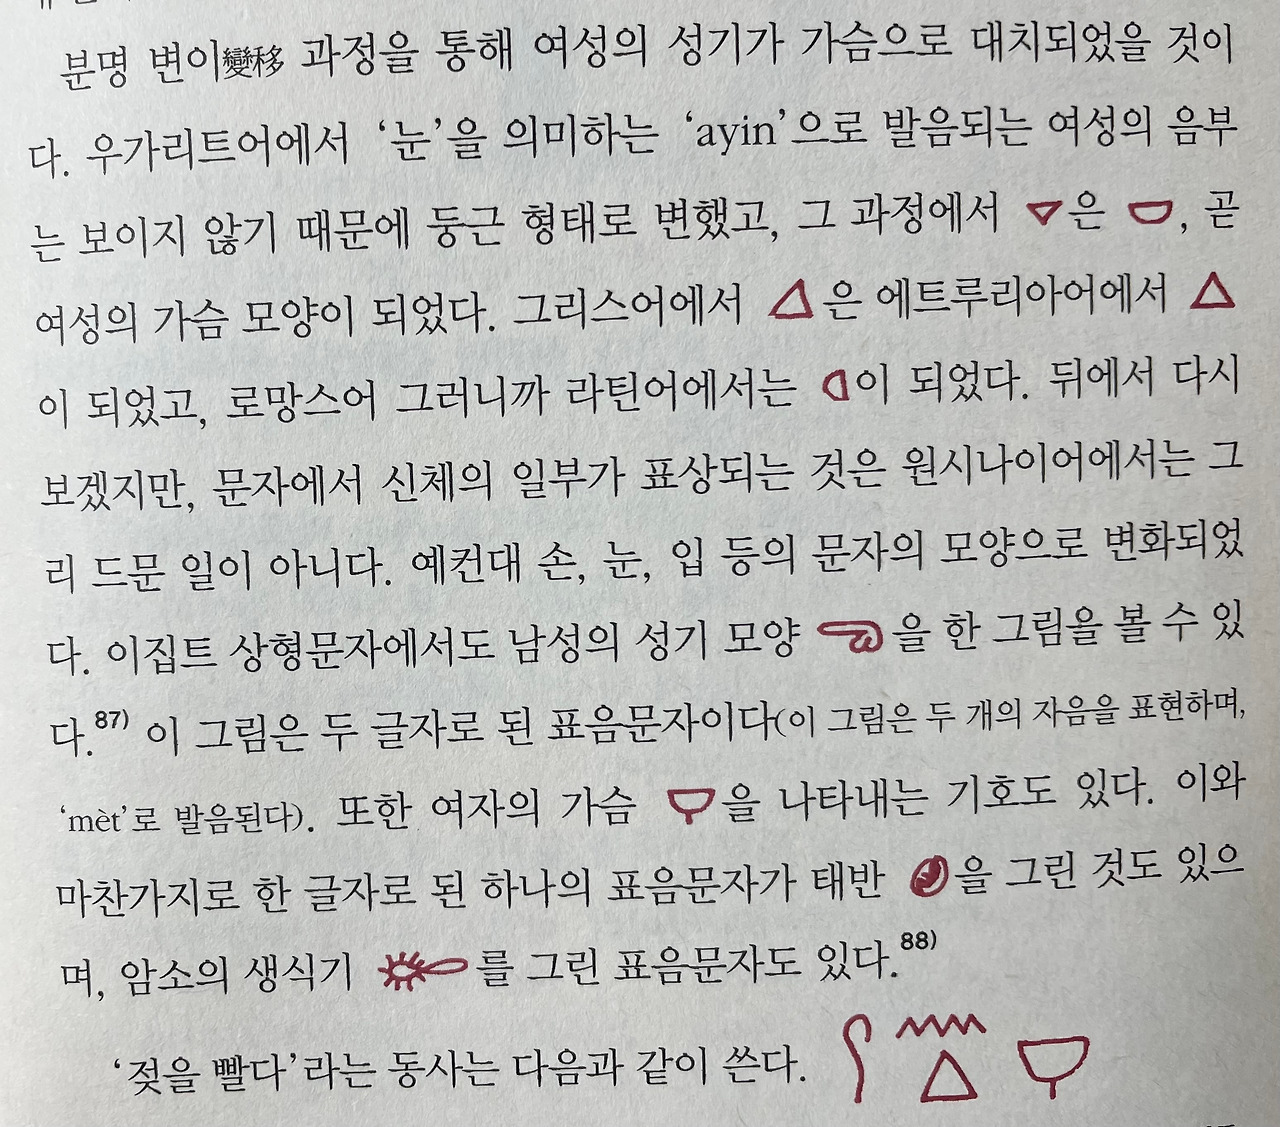 분명 변이變移 과정을 통해 여성의 성기가 가슴으로 대치되었을 것이
다. 우가리트어에서 ‘눈’을 의미하는 ‘ayin’으로 발음되는 여성의 음부
는 보이지 않기 때문에 둥근 형태로 변했고, 그 과정에서 은 , 곧
여성의 가슴 모양이 되었다. 그리스어에서 은 에트루리아어에서
이 되었고, 로망스어 그러니까 라틴어에서는 이 되었다. 뒤에서 다시
보겠지만, 문자에서 신체의 일부가 표상되는 것은 원시나이어에서는 그
리 드문 일이 아니다. 예컨대 손, 눈, 입 등의 문자의 모양으로 변화되었
다. 이집트 상형문자에서도 남성의 성기 모양 을 한 그림을 볼 수 있
다.87) 이 그림은 두 글자로 된 표음문자이다(이 그림은 두 개의 자음을 표현하며,
‘mèt’로 발음된다). 또한 여자의 가슴 을 나타내는 기호도 있다. 이와
마찬가지로 한 글자로 된 하나의 표음문자가 태반 을 그린 것도 있으
며, 암소의 생식기 를 그린 표음문자도 있다.88)
‘젖을 빨다’라는 동사는 다음과 같이 쓴다.